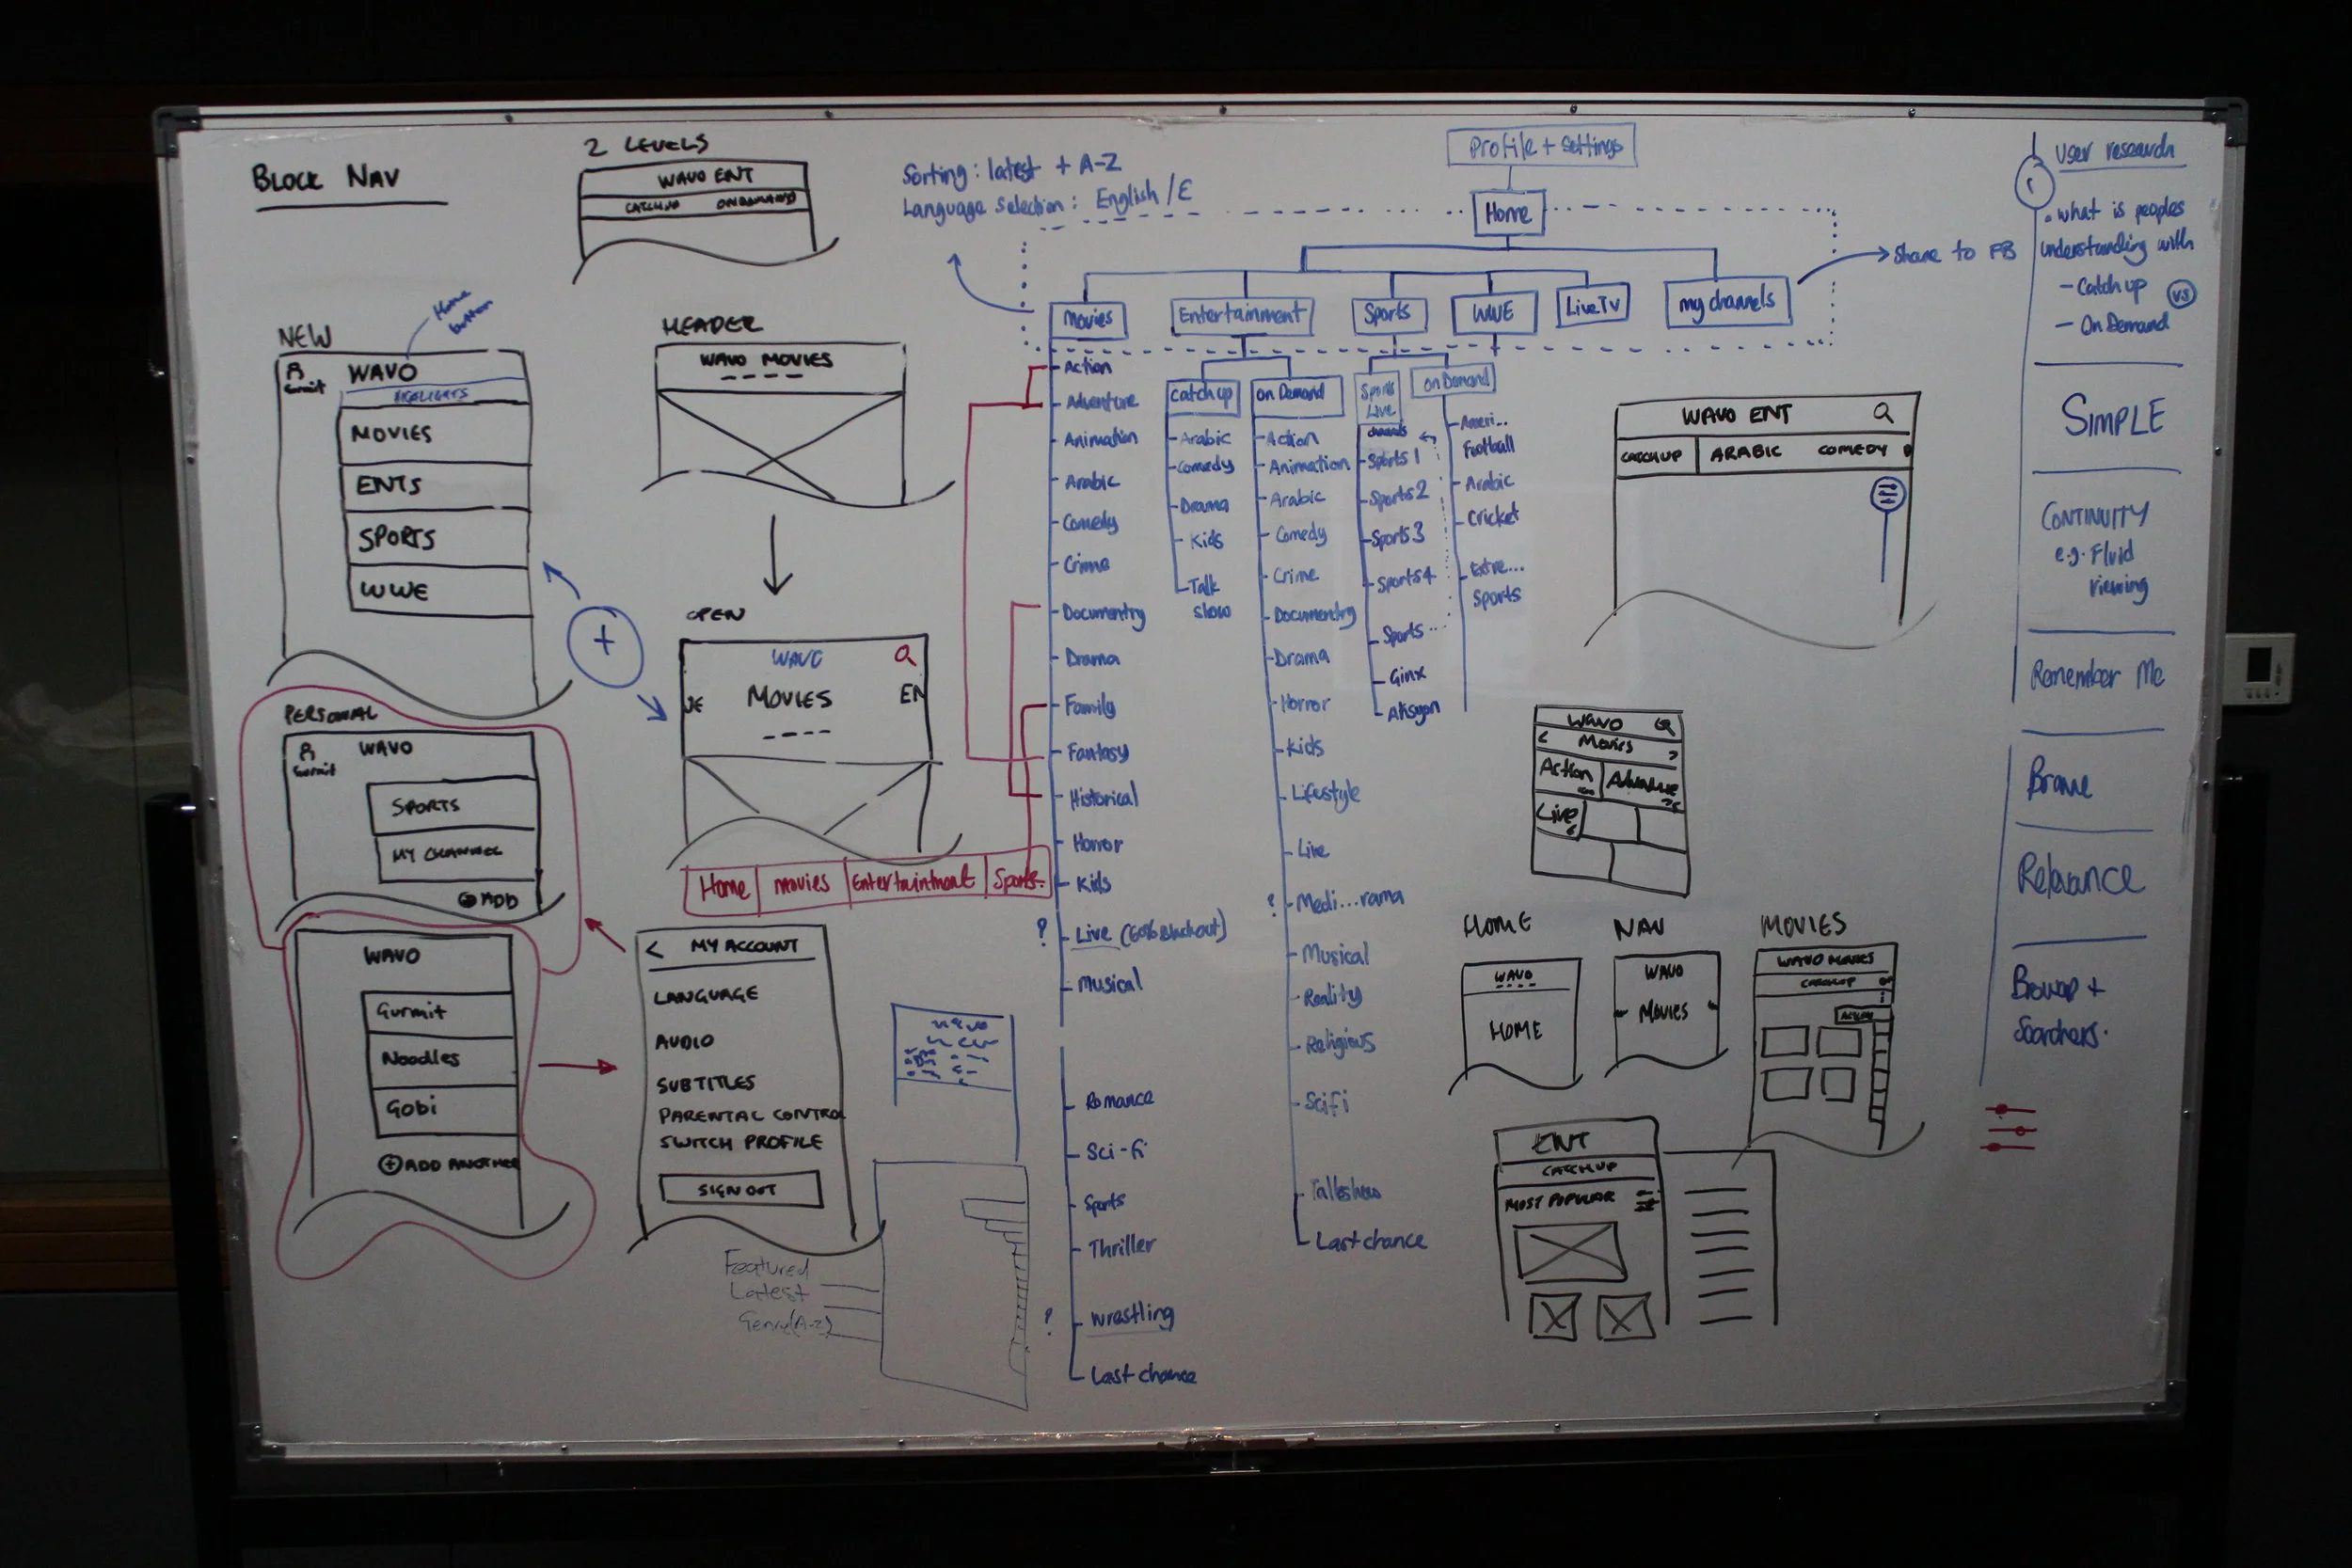 BLOCK NAV
2 LEVELS
WAVO ENT
CATCHUP ONDEMAND
NEW
Home
button
Gurmit
WAVO
HIGHLIGHTS
MOVIES
ENTS
SPORTS
WWE
HEADER
WAVO MOVIES
OPEN
WAVO
MOVIES
EN
+
PERSONAL
WAVO
Gurmit
SPORTS
MY CHANNEL
ADD
WAVO
Gurmit
Noodles
Gobi
+ ADD ANOTHER
Home
movies
Entertaintment
Sports
< MY ACCOUNT
LANGUAGE
AUDIO
SUBTITLES
PARENTAL CONTRO
SWITCH PROFILE
SIGN OUT
Featured
Latest
Genre(A-Z)
Sorting: latest + A-Z
Language Selection: English /E
Profile + Settings
Home
Share to FB
Movies
Entertainment
Sports
WWE
Live Tv
my channels
Action
Adventure
Animation
Arabic
Comedy
Crime
Documentry
Drama
Family
Fantasy
Historical
Horror
Kids
? Live (60% Blackout)
Musical
Romance
Sci-fi
Sports
Thriller
? Wrestling
Last chance
Catch up
Arabic
Comedy
Drama
Kids
Talk
slow
on Demand
Action
Animation
Arabic
Comedy
Crime
Documentry
Drama
Horror
Kids
Lifestyle
Live
? Medi...rama
Musical
Reality
Religious
Scifi
Talkshow
Last chance
Sports
Live
channels
Sports 1
Sports 2
Sports 3
Sports 4
Sports...
Ginx
Aksyon
on Demand
Ameri...
Football
Arabic
Cricket
Extre...
Sports
WAVO ENT
CATCHUP ARABIC COMEDY
WAVO
< Movies >
Action
Adventure
Live
HOME
WAVO
HOME
NAV
WAVO
MOVIES
MOVIES
WAVO MOVIES
CATCHUP
ENT
CATCHUP
MOST POPULAR
User research
. what is peoples
understanding with
- Catch up
vs
- On Demand
SIMPLE
CONTINUITY
e.g. Fluid
viewing
Remember Me
Relevance
Searchers.